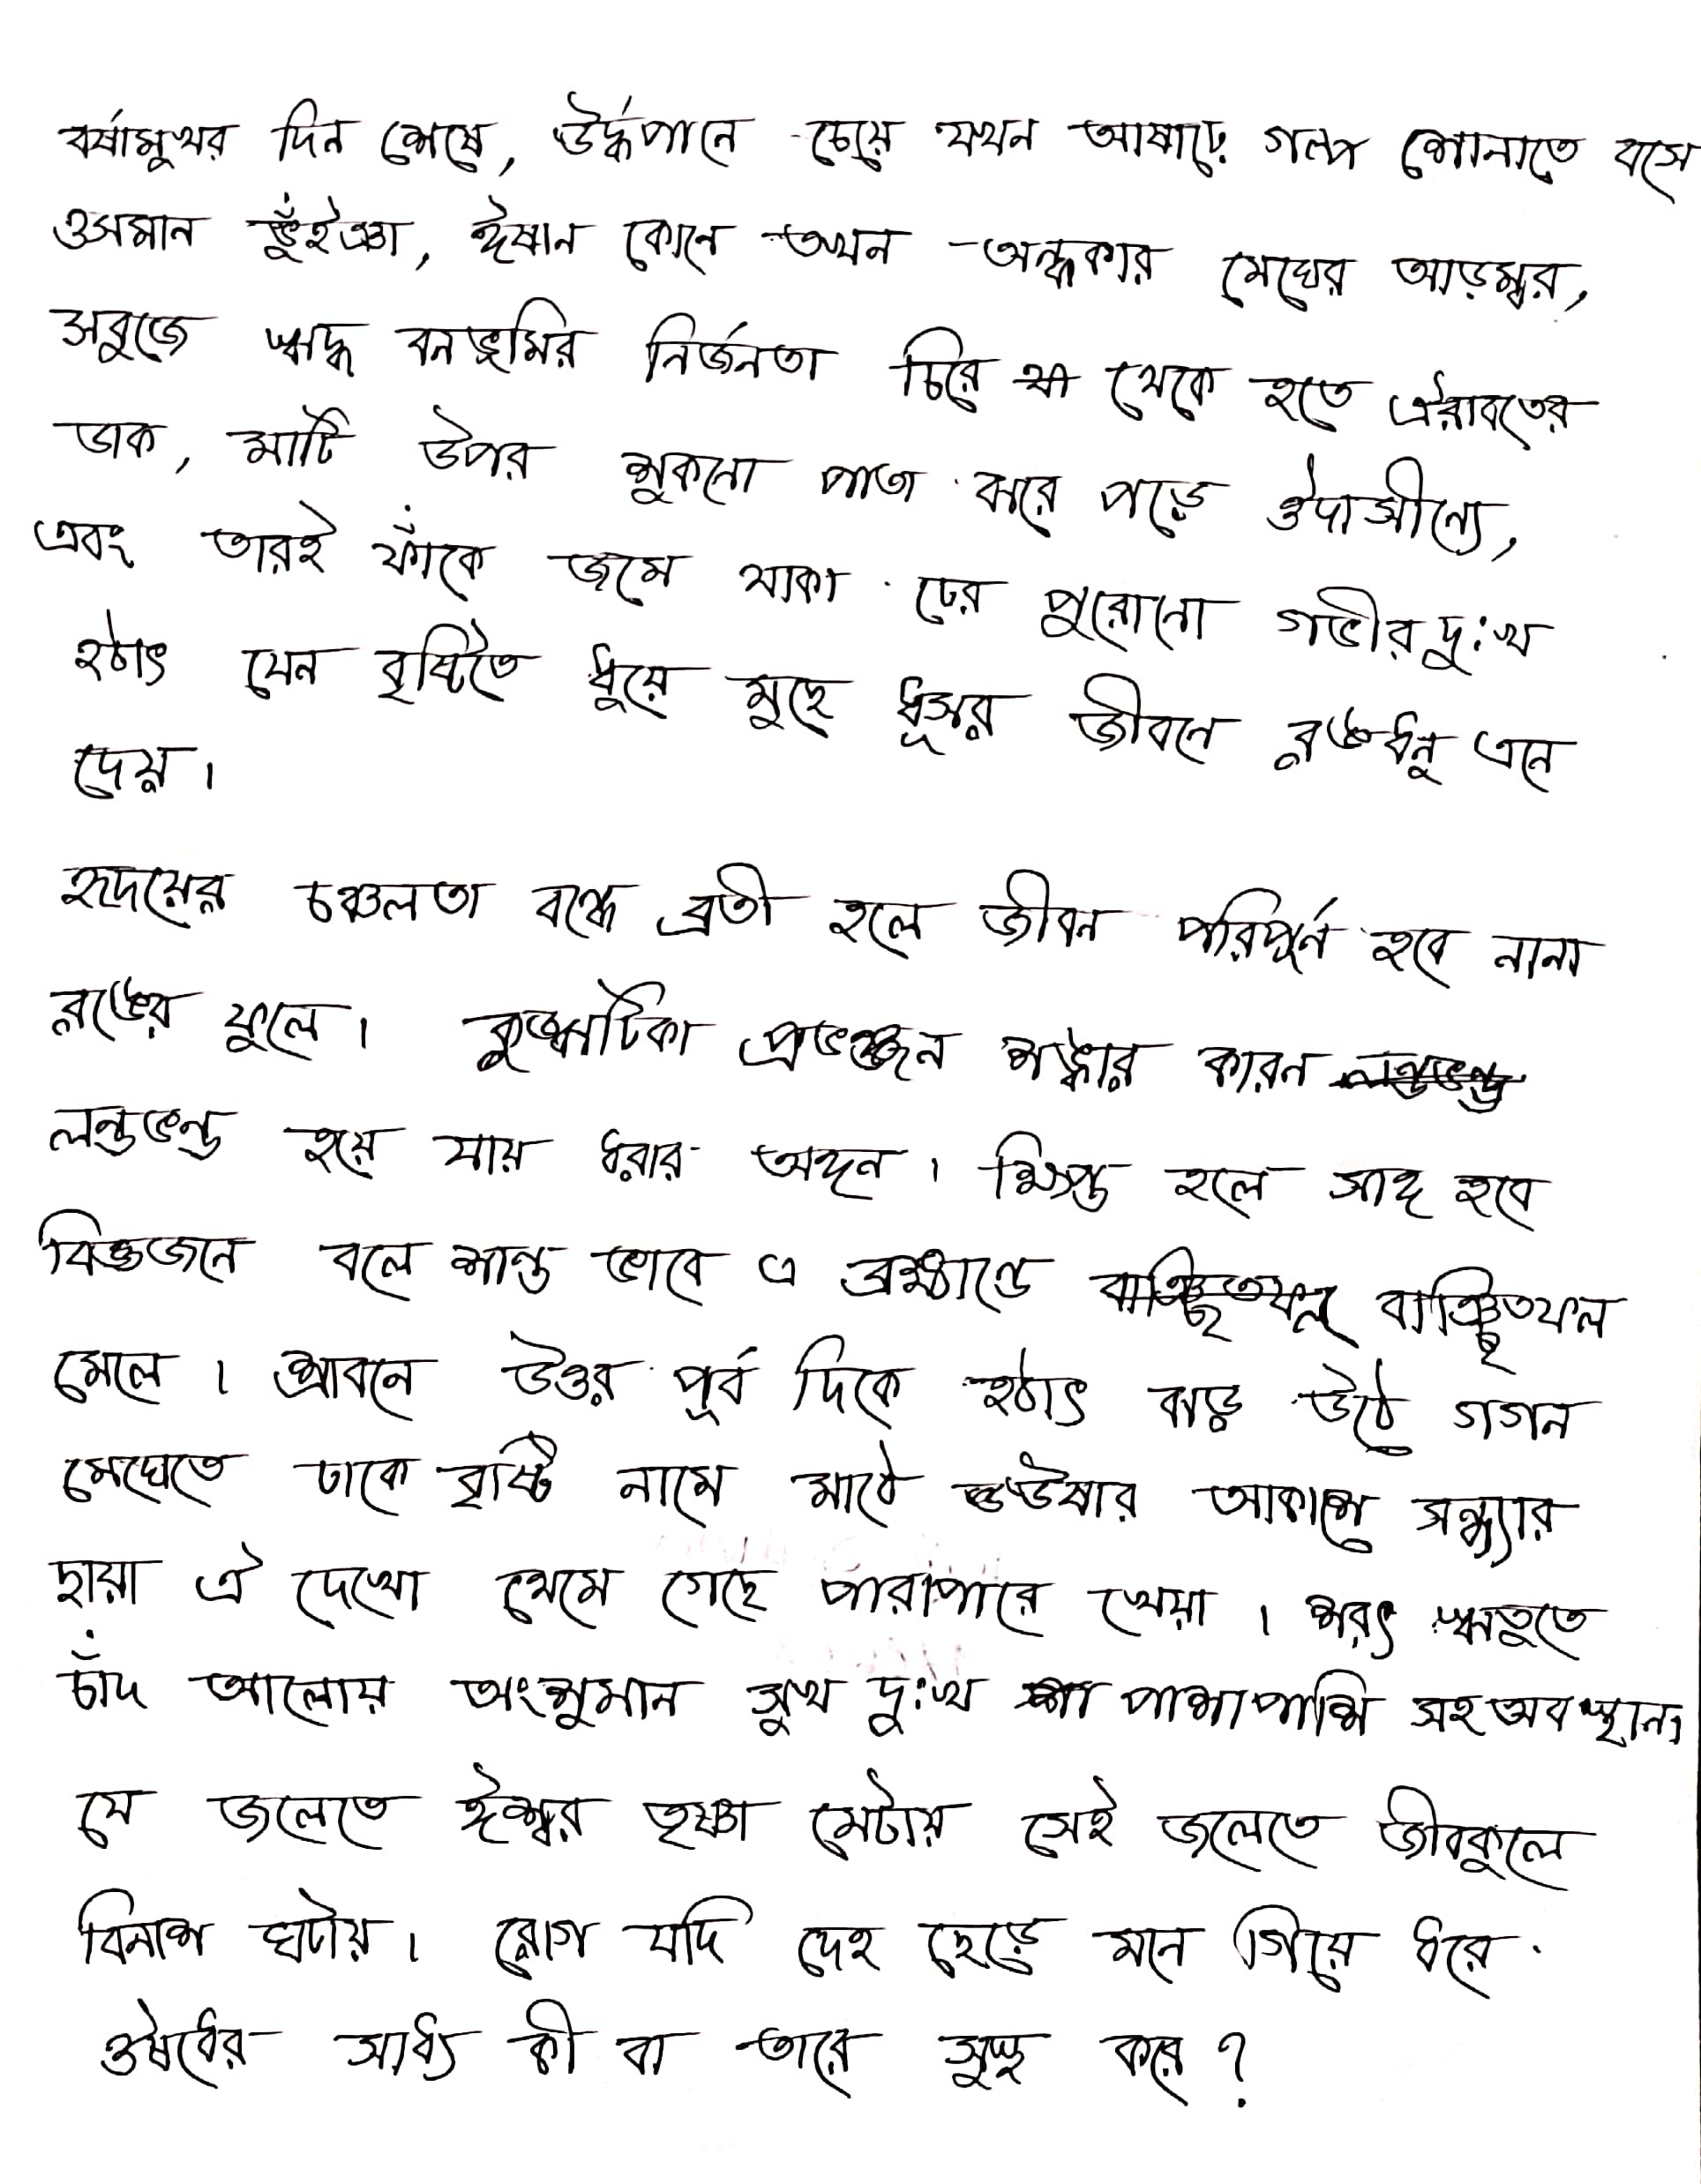 বর্ষামুখর দিন শেষে, উর্দ্ধপানে চেয়ে যখন আষাঢ়ে গল্প শোনাতে বসে
ওসমান ভুঁইঞা, ঈষান কোনে তখন অন্ধকার মেঘের আড়ম্বর,
সবুজে ঋদ্ধ বনভূমির নির্জনতা চিরে থা থেকে হতে ঐরাবতের
ডাক, মাটি উপর শুকনো পাতা ঝরে পড়ে ঔদাসীন্যে,
এবং তারই ফাঁকে জমে থাকা ঢের পুরোনো গভীর দুঃখ
হঠাৎ যেন বৃষ্টিতে ধুয়ে মুছে ধূসর জীবনে রঙধনু এনে
দেয়।
হৃদয়ের চঞ্চলতা বন্ধে ব্রতী হলে জীবন পরিপূর্ন হবে নানা
রঙের ফুলে। কুজ্ঝটিকা প্রভঞ্জন শঙ্কার কারন লন্ডভন্ড
লন্ডভন্ড হয়ে যায় ধরার অঙ্গন। ক্ষিপ্ত হলে সাঙ্গ হবে
বিজ্ঞজনে বলে শান্ত ভাবে এ ব্রহ্মাণ্ডে বাঞ্ছিতফল বাঞ্ছিতফল
মেলে। শ্রাবনে উত্তর পূর্ব দিকে হঠাৎ ঝড় উঠে গগন
মেঘেতে ঢাকে বৃষ্টি নামে মাঠে উষার আকাশে সন্ধ্যার
ছায়া ঐ দেখো থেমে গেছে পারাপারে খেয়া। শরৎ ঋতুতে
চাঁদ আলোয় অংশুমান সুখ দুঃখ পাশাপাশি সহঅবস্থান।
যে জলেতে ঈশ্বর তৃষ্ণা মেটায় সেই জলেতে জীবকুলে
বিনাশ ঘটায়। রোগ যদি দেহ ছেড়ে মনে গিয়ে ধরে
ঔষধের সাধ্য কী বা তারে সুস্থ করে?